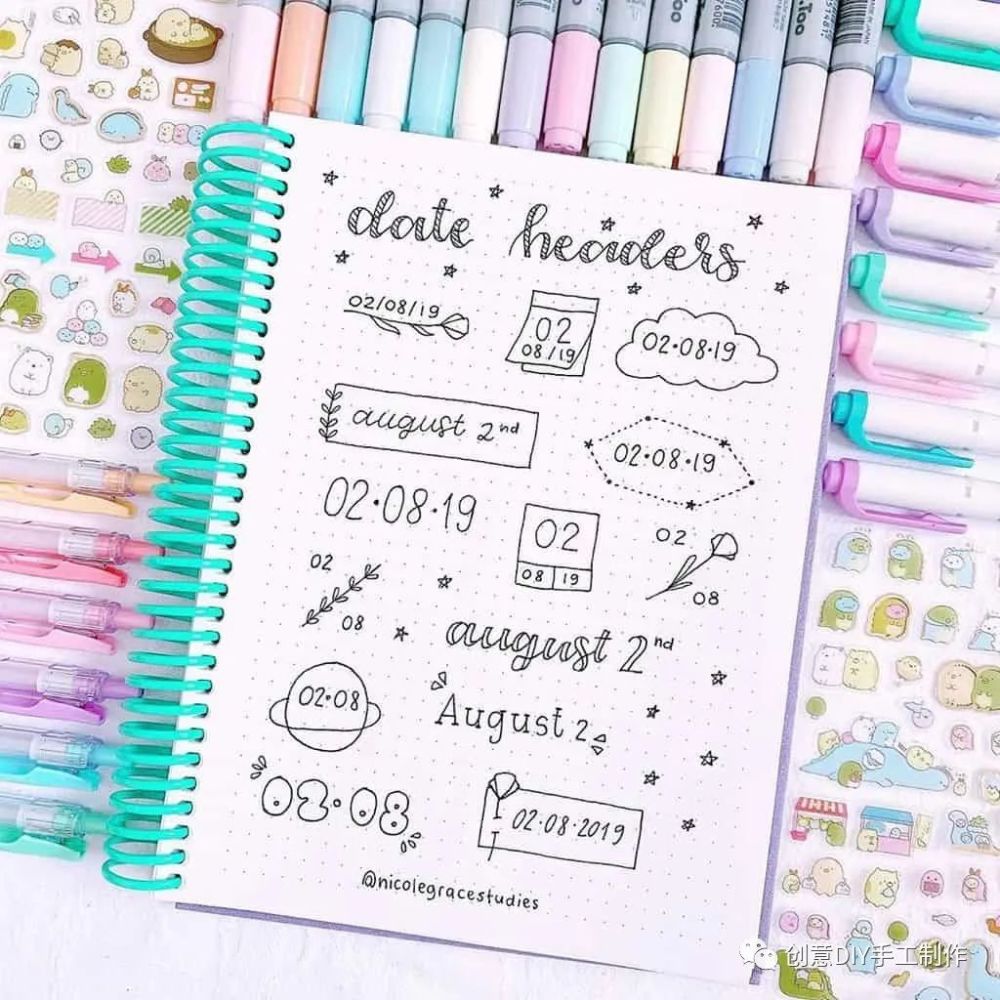 Too
date headers
02/08/19
02
08/19
02•08•19
august 2nd
02•08•19
02•08•19
02
08 19
02
08
02
08
august 2nd
02•08
August 2
02•08
02•08•2019
@nicolegracestudies
创意DIY手工制作